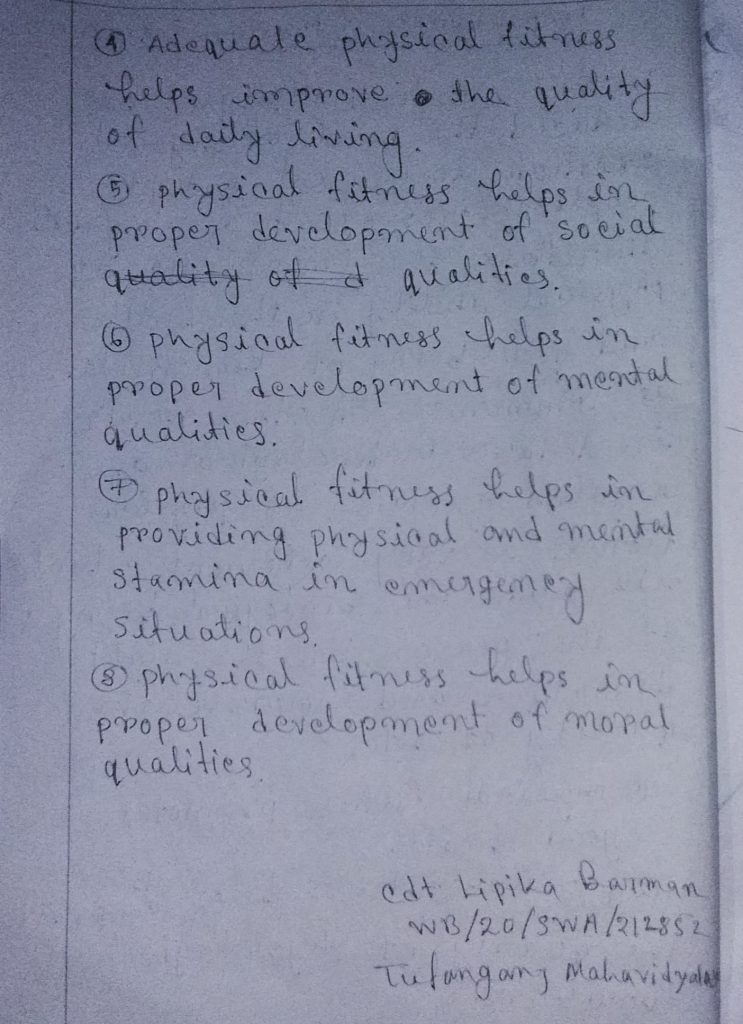 ④ Adequate physical fitness
helps improve the quality
of daily living.
⑤ physical fitness helps in
proper development of social
quality of d qualities.
⑥ physical fitness helps in
proper development of mental
qualities.
⑦ physical fitness helps in
providing physical and mental
stamina in emergency
situations.
⑧ physical fitness helps in
proper development of moral
qualities.
cdt Lipika Barman
WB/20/SWA/212852
Tufanganj Mahavidyalay